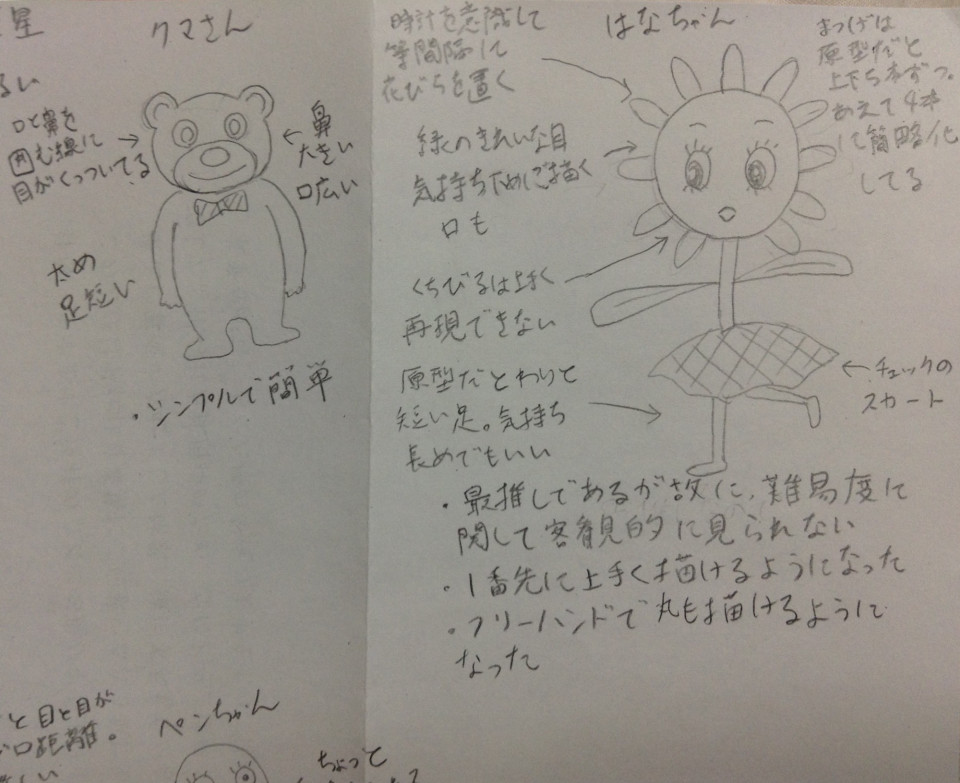 星
るい
クマさん
口と鼻を
囲む線に
目がくっついてる
鼻
大きい
口広い
太め
足短い
・シンプルで簡単
時計を意識して
等間隔に
花びらを置く
はなちゃん
まつげは
原型だと
上下5本ずつ。
あえて4本
に簡略化
してる
緑のきれいな目
気持ちためにご描く
口も
くちびるは上手く
再現できない
原型だとわりと
短い足。気持ち
長めでもいい
チェックの
スカート
・最推しであるが故に、難易度に
関して客観的に見られない
・1番先に上手く描けるようになった
・フリーハンドで丸も描けるように
なった
と目と目が
口距離。
しい
ペンちゃん
ちょっと